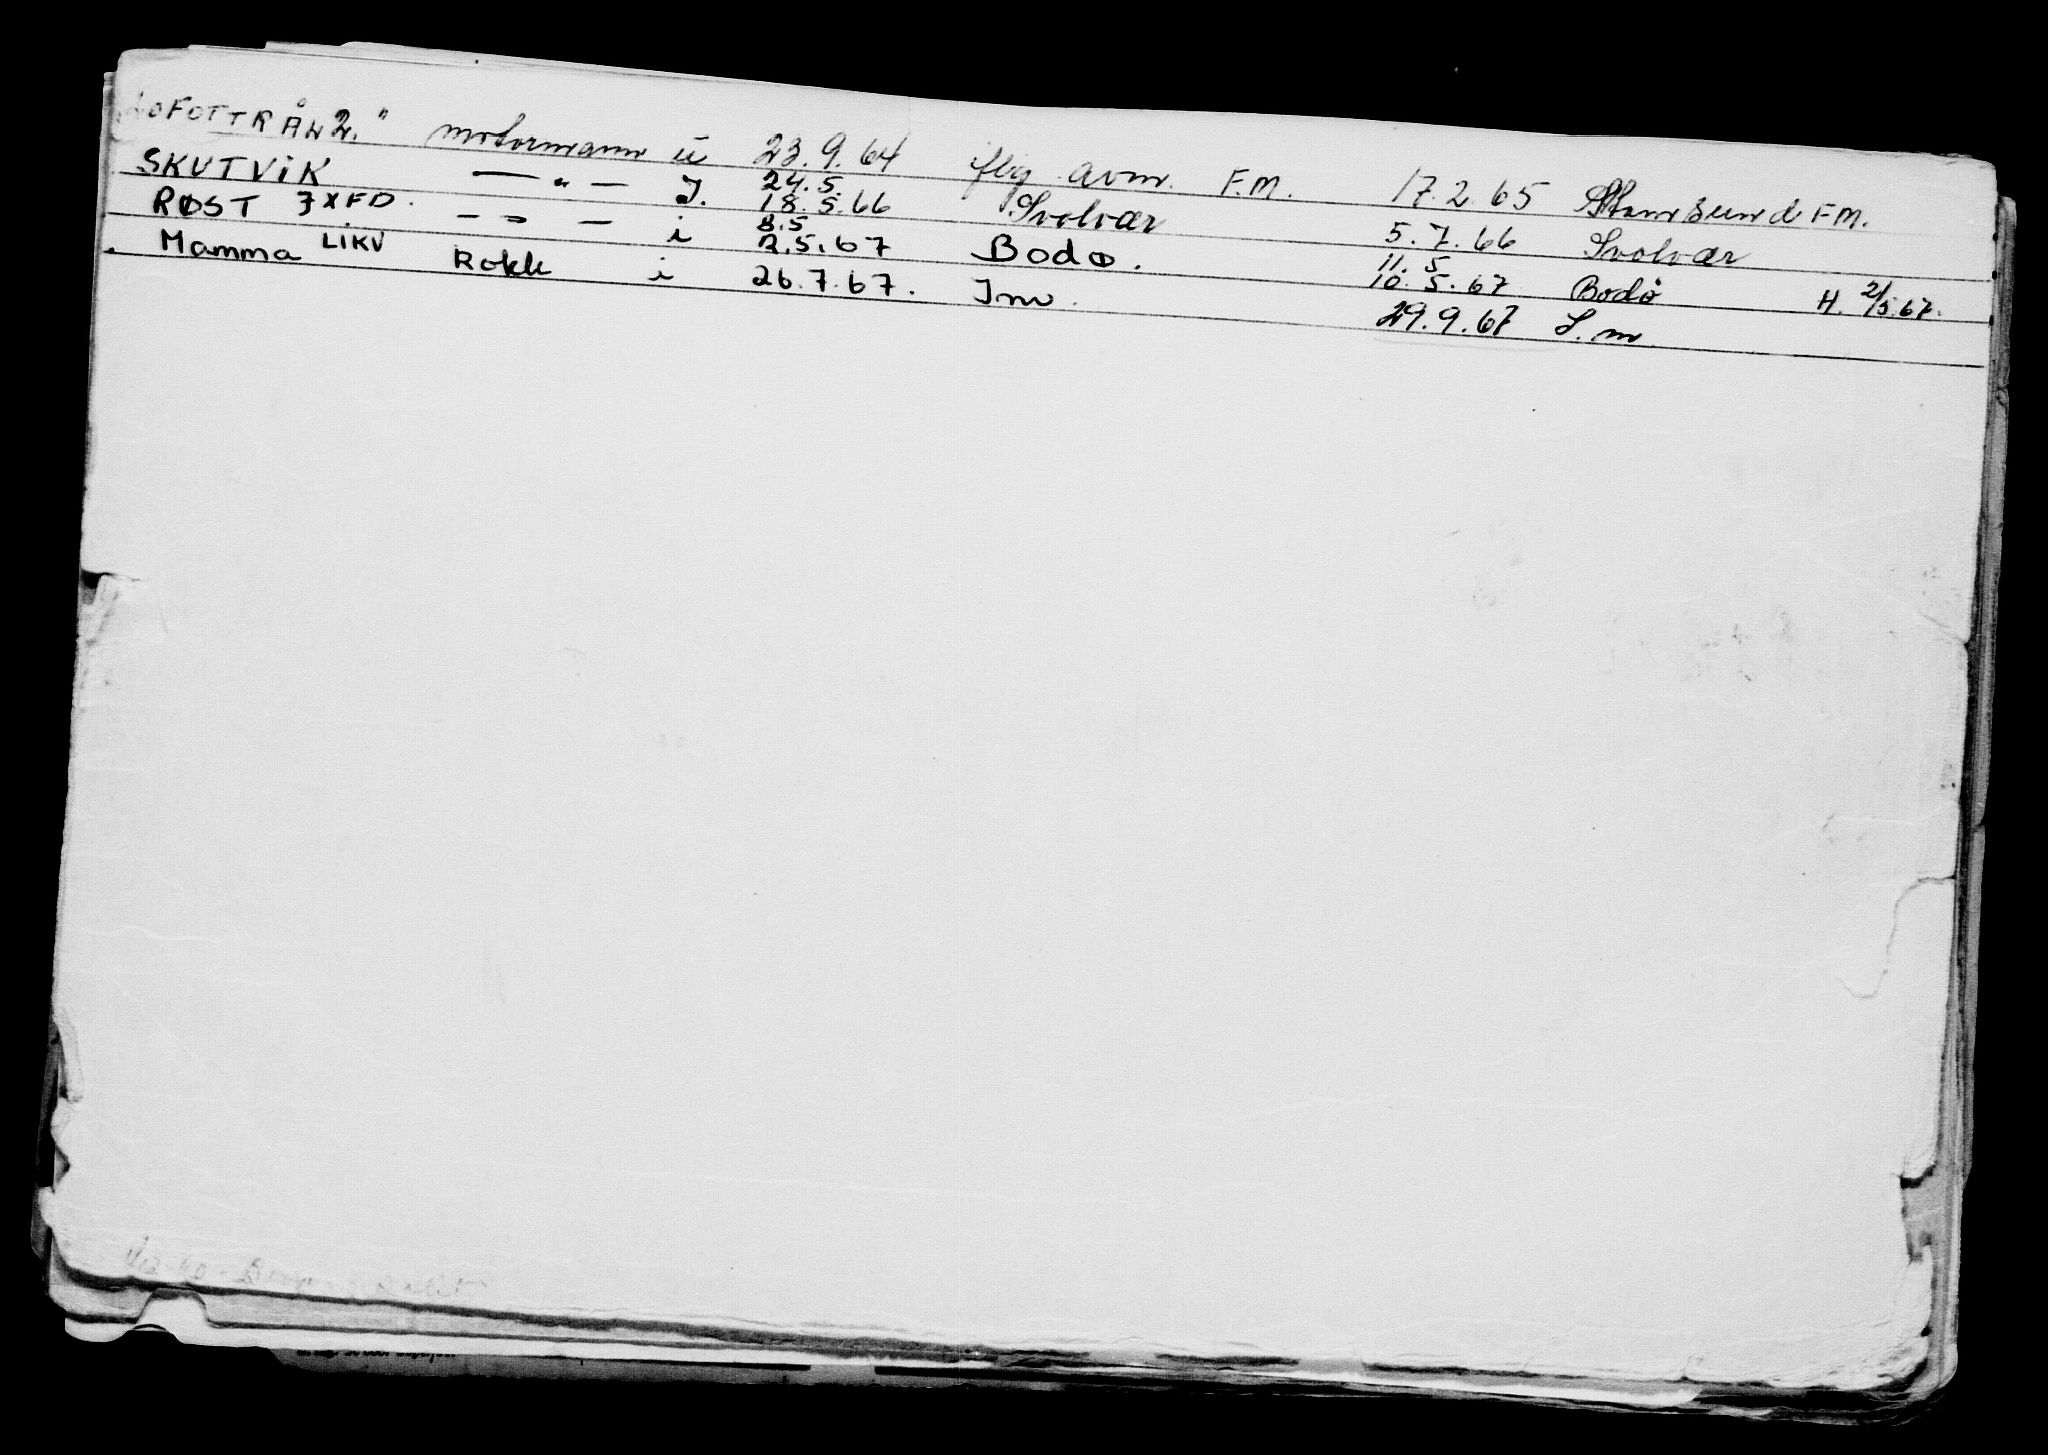 LOFOTTRÅL 2." motormann u 23.9.64 iflg. avm. F.M. 17.2.65 Stamsund F.M.
SKUTVIK — " — J. 24.5. 18.5.66 Svolvær 5.7.66 Svolvær
RØST JXFD. — " — i 8.5 2.5.67 Bodø. 11.5 10.5.67 Bodø H. 2/5.67.
Mamma LIKV Kokk i 26.7.67. Im. 29.9.67 S.m.